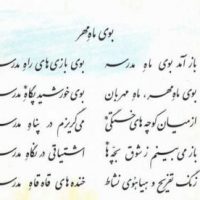 بوی ماهِ مهر
باز آمد بوی ماهِ مدرسه بوی بازی‌های راه مدرسه
بوی ماهِ مهر، ماه مهربان بوی خورشید پگاه مدرسه
از میان کوچه‌های خستگی می‌گریزم در پناه مدرسه
باز می‌بینم ز شوق بچّه‌ها اشتیاقی در نگاه مدرسه
زنگ تفریح و هیاهوی نشاط خنده‌های قاه قاهِ مدرسه